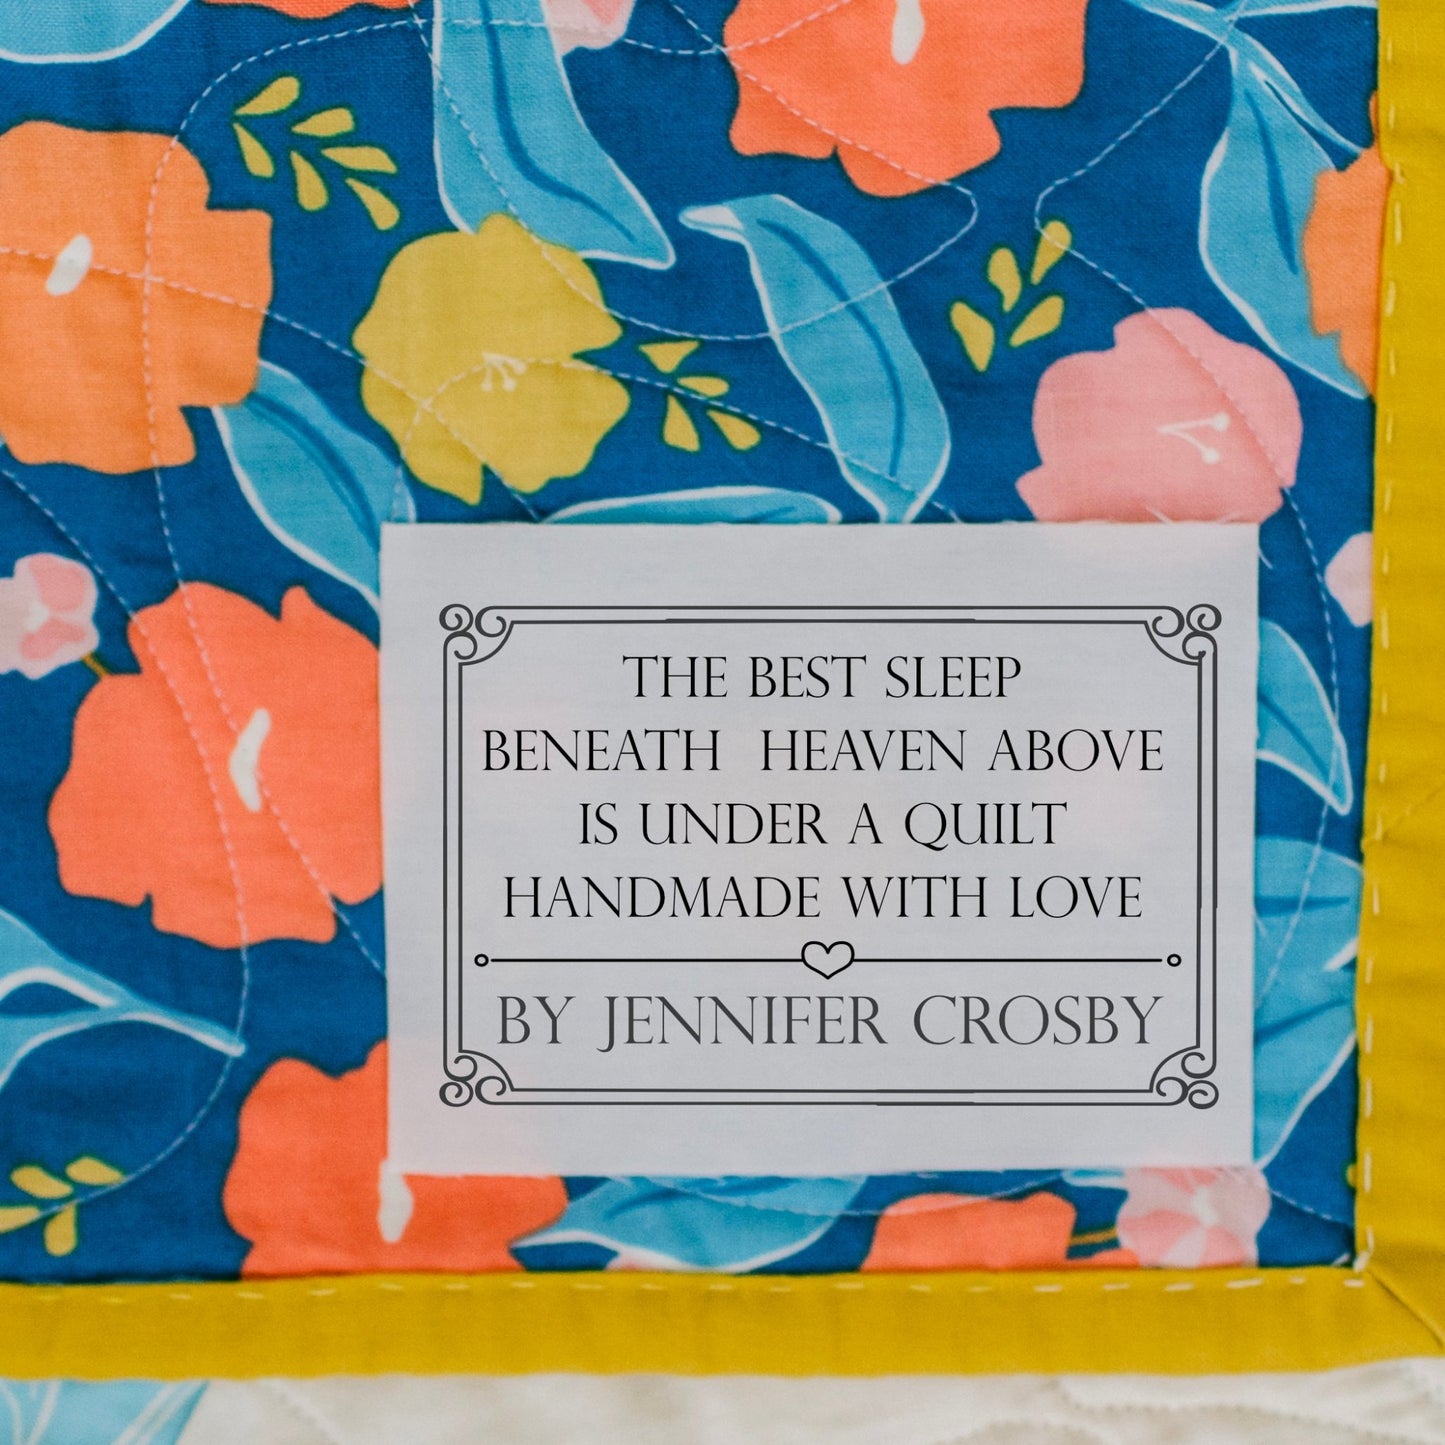 THE BEST SLEEP
BENEATH HEAVEN ABOVE
IS UNDER A QUILT
HANDMADE WITH LOVE
BY JENNIFER CROSBY